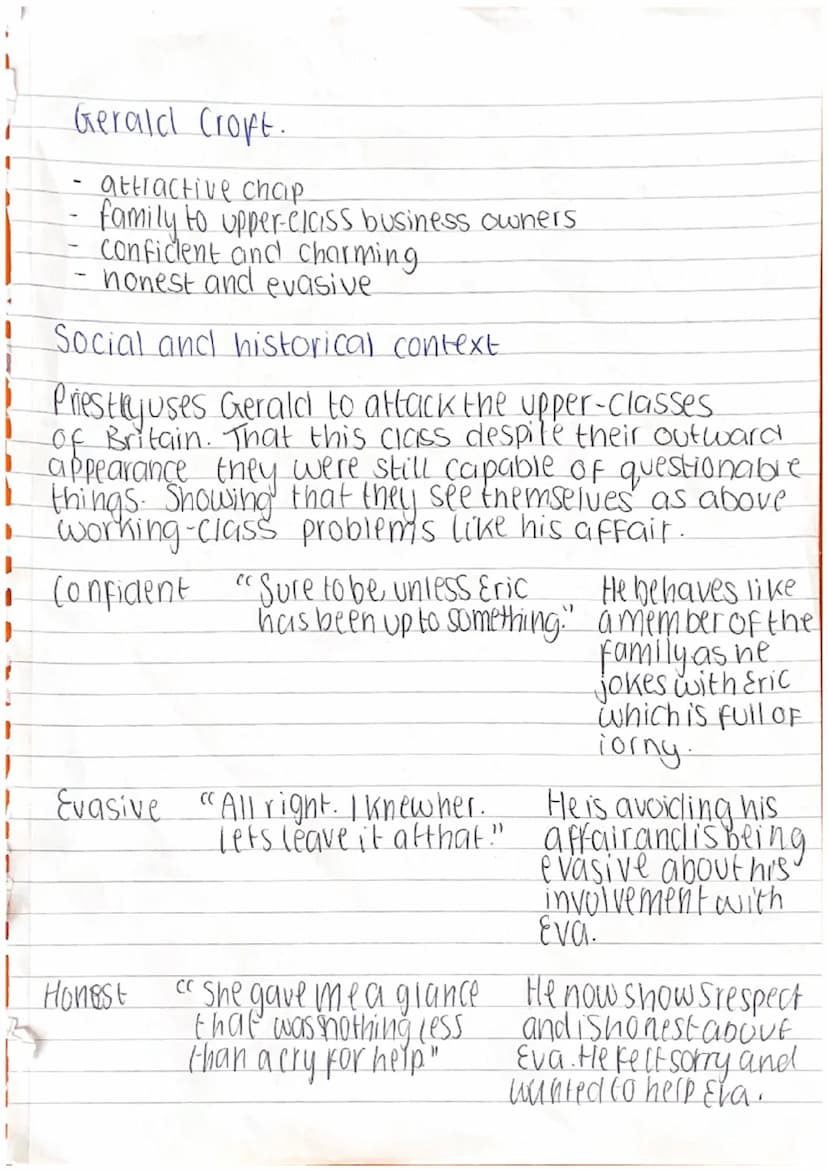 Gerald Croft.
- attractive chap
- family to upper-class business owners
- confident and charming
- honest and evasive
Social and historical context
Priestly uses Gerald to attack the upper-classes
of Britain. That this class despite their outward
appearance they were still capable of questionable
things. Showing that they see themselves as above
working-class problems like his affair.
Confident "Sure to be, unless Eric He behaves like
has been up to something." a member of the
family as he
jokes with Eric
which is full of
iorny.
Evasive "All right. I knew her. He is avoiding his
Lets leave it at that." affair and is being
evasive about his
involvement with
Eva.
Honest "She gave me a glance He now shows respect
that was nothing less and is honest about
than a cry for help" Eva. He felt sorry and
wanted to help Eva.